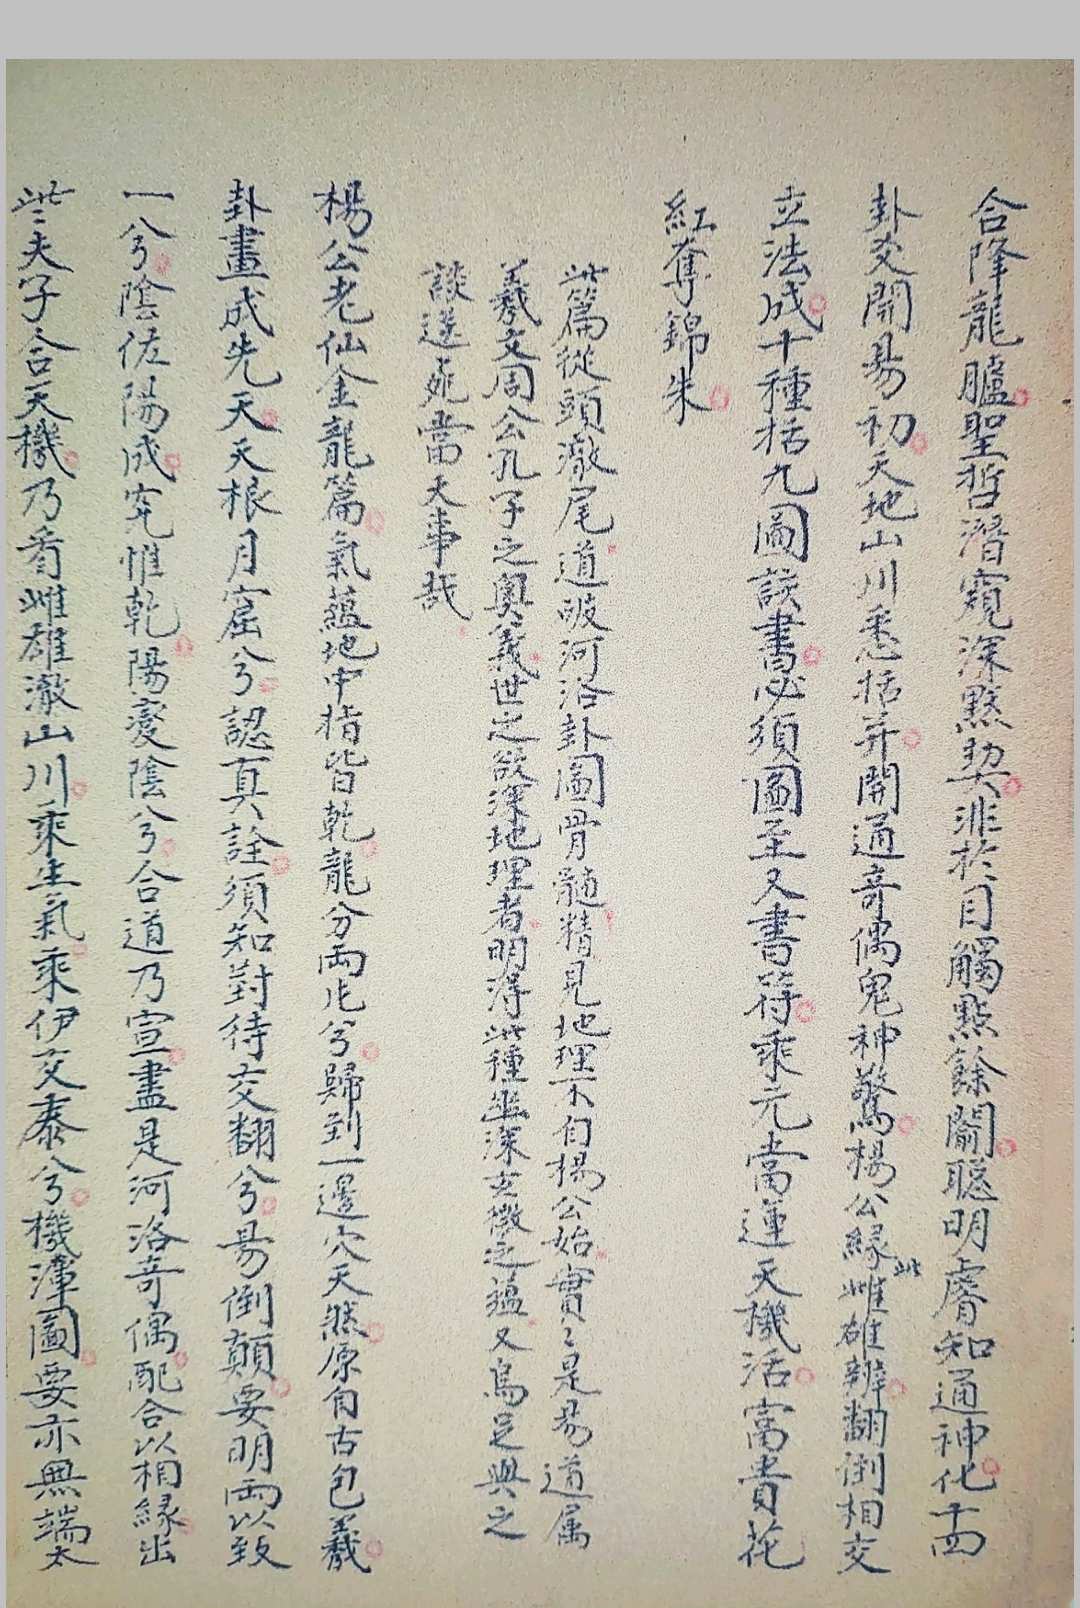 合降龍臚聖哲潛窺深黙契非於目觸點餘闞聰明睿知通神化十四
卦爻開易初天地山川悉括并開通奇偶鬼神驚楊公緣此雌雄辨翻倒相交
立法成十種括九圖談書必須圖至又書符乘元當運天機活富貴花
紅奪錦朱
此篇從頭澈尾道破河洛卦圖骨髓精見地理不自楊公始實〻是易道属
羲文周公孔子之奧義世之欲深地理者明得此種幽深玄微之蘊又烏足與之
談送死當大事哉
楊公老仙金龍篇氣蘊地中指皆乾龍分兩片兮歸到一邊穴天然原自古包羲
卦畫成先天天根月窟兮認真詮須知對待交翻兮易倒顛要明兩以致
一兮陰佐陽成究惟乾陽變陰兮合道乃宣盡是河洛奇偶配合以相緣出
此〻夫子合天機乃看雌雄澈山川乘生氣乘伊交泰兮機渾圖要亦無端太